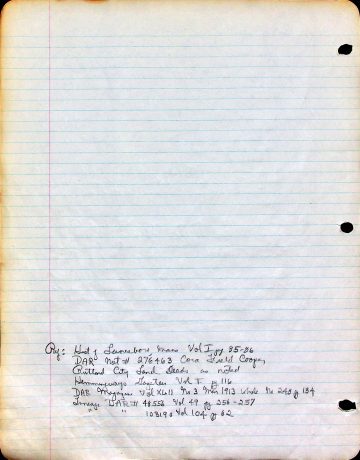 Ref: Hist of Lanesboro Mass Vol I pg 85-86
DAR Nat # 276463 Cora Field Cooper
Rutland City Land Deeds as noted
Hemmingways Gazetteer Vol V pg 116
DAR Magazine Vol XLII No 3 Mar 1913 whole No 248 pg 134
Lineage DAR # 48556 Vol 49 pg 256-257
" " 103190 Vol 104 pg 62